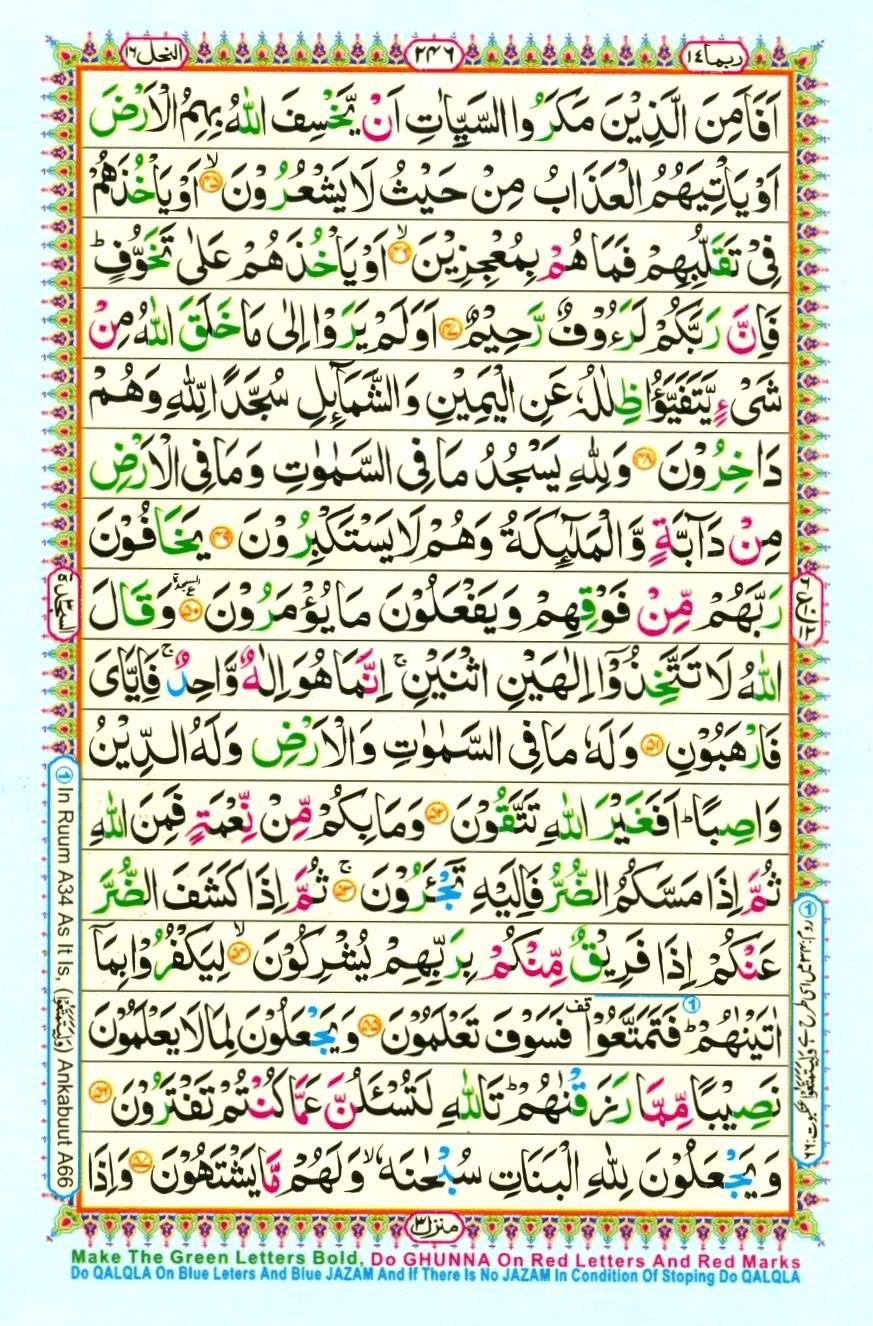 ربما ١٤
٢٤٦
النحل ١٦
اَفَاَمِنَ الَّذِيْنَ مَكَرُوا السَّيِّاٰتِ اَنْ يَّخْسِفَ اللّٰهُ بِهِمُ الْاَرْضَ
اَوْ يَاْتِيَهُمُ الْعَذَابُ مِنْ حَيْثُ لَا يَشْعُرُوْنَ ۙ‏﴿۴۵﴾ اَوْ يَاْخُذَهُمْ
فِيْ تَقَلُّبِهِمْ فَمَا هُمْ بِمُعْجِزِيْنَ ۙ‏﴿۴۶﴾ اَوْ يَاْخُذَهُمْ عَلٰى تَخَوُّفٍ ؕ
فَاِنَّ رَبَّكُمْ لَرَءُوْفٌ رَّحِيْمٌ ‏﴿۴۷﴾ اَوَلَمْ يَرَوْا اِلٰى مَا خَلَقَ اللّٰهُ مِنْ
شَيْءٍ يَّتَفَيَّؤُا ظِلٰلُهٗ عَنِ الْيَمِيْنِ وَالشَّمَآئِلِ سُجَّدًا لِّلّٰهِ وَهُمْ
دَاخِرُوْنَ ‏﴿۴۸﴾ وَلِلّٰهِ يَسْجُدُ مَا فِي السَّمٰوٰتِ وَمَا فِي الْاَرْضِ
مِنْ دَآبَّةٍ وَّالْمَلٰٓئِكَةُ وَهُمْ لَا يَسْتَكْبِرُوْنَ ‏﴿۴۹﴾ يَخَافُوْنَ
رَبَّهُمْ مِّنْ فَوْقِهِمْ وَيَفْعَلُوْنَ مَا يُؤْمَرُوْنَ ‏﴿۵۰﴾ السجدة وَقَالَ
اللّٰهُ لَا تَتَّخِذُوْٓا اِلٰهَيْنِ اثْنَيْنِ ۚ اِنَّمَا هُوَ اِلٰهٌ وَّاحِدٌ ۚ فَاِيَّايَ
فَارْهَبُوْنِ ‏﴿۵۱﴾ وَلَهٗ مَا فِي السَّمٰوٰتِ وَالْاَرْضِ وَلَهُ الدِّيْنُ
وَاصِبًا ؕ اَفَغَيْرَ اللّٰهِ تَتَّقُوْنَ ‏﴿۵۲﴾ وَمَا بِكُمْ مِّنْ نِّعْمَةٍ فَمِنَ اللّٰهِ
ثُمَّ اِذَا مَسَّكُمُ الضُّرُّ فَاِلَيْهِ تَجْئَرُوْنَ ۚ‏﴿۵۳﴾ ثُمَّ اِذَا كَشَفَ الضُّرَّ
عَنْكُمْ اِذَا فَرِيْقٌ مِّنْكُمْ بِرَبِّهِمْ يُشْرِكُوْنَ ۙ‏﴿۵۴﴾ لِيَكْفُرُوْا بِمَآ
اٰتَيْنٰهُمْ ؕ فَتَمَتَّعُوْا قف فَسَوْفَ تَعْلَمُوْنَ ‏﴿۵۵﴾ وَيَجْعَلُوْنَ لِمَا لَا يَعْلَمُوْنَ
نَصِيْبًا مِّمَّا رَزَقْنٰهُمْ ؕ تَاللّٰهِ لَتُسْئَلُنَّ عَمَّا كُنْتُمْ تَفْتَرُوْنَ ‏﴿۵۶﴾
وَيَجْعَلُوْنَ لِلّٰهِ الْبَنَاتِ سُبْحٰنَهٗ ۙ وَلَهُمْ مَّا يَشْتَهُوْنَ ‏﴿۵۷﴾ وَاِذَا
السجدة ٣
① روم:۳۴ میں اسی طرح ہے وَلِيَتَمَتَّعُوْا عنکبوت:۶۶
① In Ruum A34 As It Is, (وَلِيَتَمَتَّعُوْا) Ankabuut A66
منزل ٣
Make The Green Letters Bold, Do GHUNNA On Red Letters And Red Marks
Do QALQLA On Blue Leters And Blue JAZAM And If There Is No JAZAM In Condition Of Stoping Do QALQLA